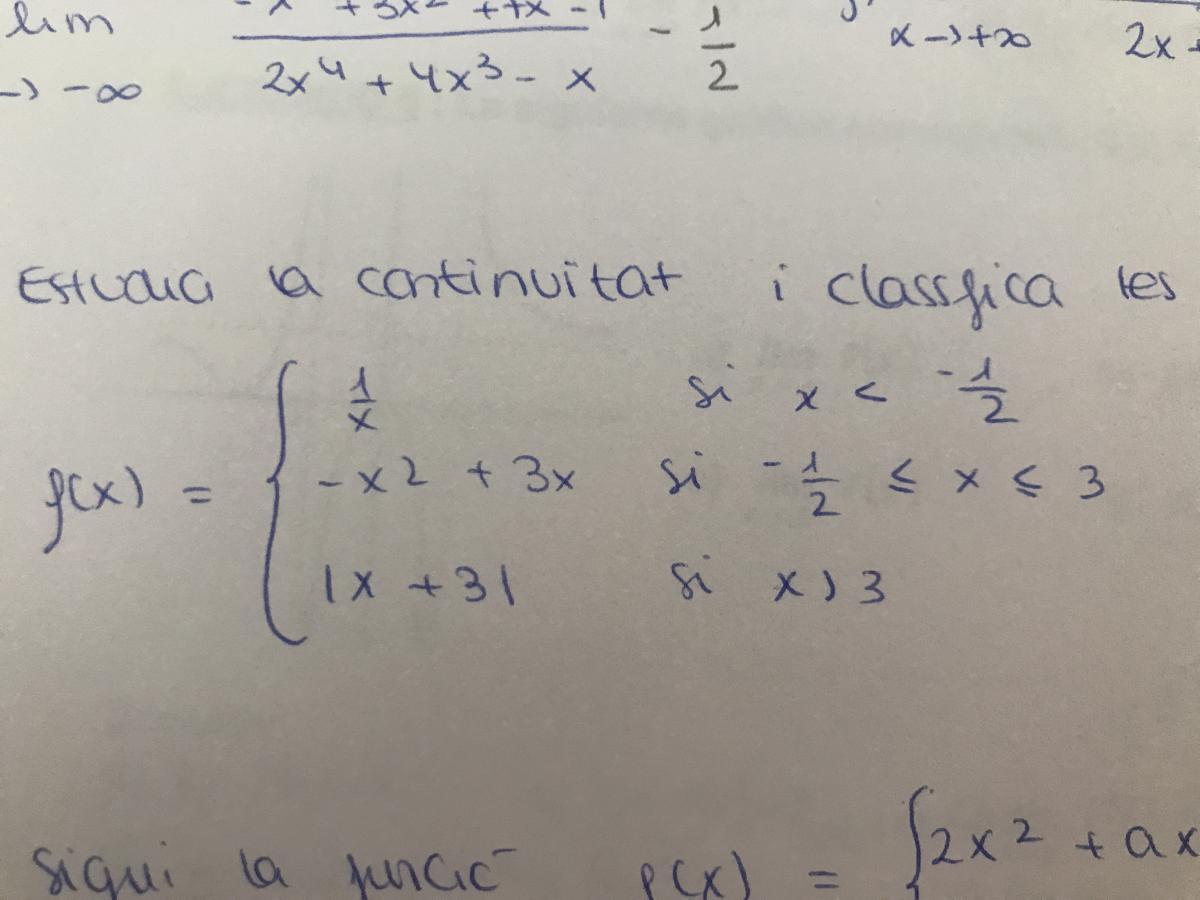 lim -x + 3x² + 7x - 1 / 2x⁴ + 4x³ - x - 1/2 x → +∞ 2x +
→ -∞
Estudia la continuitat i classfica les
1/x si x < -1/2
f(x) = { -x2 + 3x si -1/2 ≤ x ≤ 3
|x + 3| si x > 3
Sigui la funció f(x) = { 2x² + ax